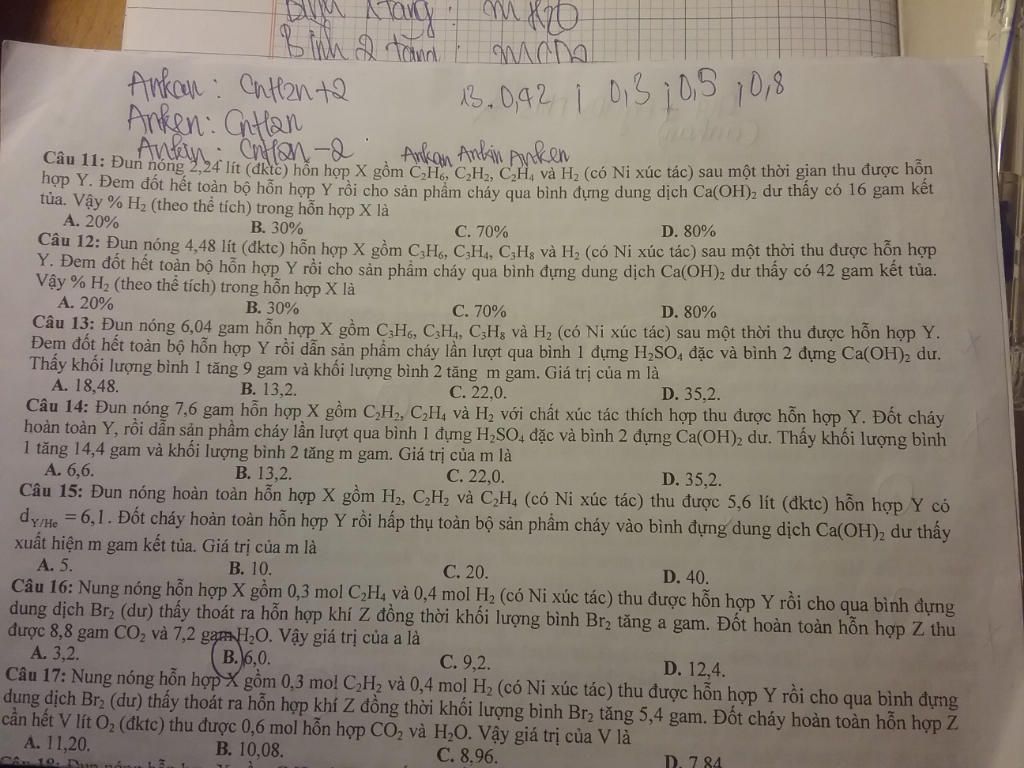 Bình 1 tăng: mH2O
Bình 2 tăng: mCO2
Ankan: CnH2n+2
13. 0,42 ; 0,3 ; 0,5 ; 0,8
Anken: CnH2n
Ankin: CnH2n-2
Ankan Ankin Anken
Câu 11: Đun nóng 2,24 lít (đktc) hỗn hợp X gồm C₂H₆, C₂H₂, C₂H₄ và H₂ (có Ni xúc tác) sau một thời gian thu được hỗn
hợp Y. Đem đốt hết toàn bộ hỗn hợp Y rồi cho sản phẩm cháy qua bình đựng dung dịch Ca(OH)₂ dư thấy có 16 gam kết
tủa. Vậy % H₂ (theo thể tích) trong hỗn hợp X là
A. 20% B. 30% C. 70% D. 80%
Câu 12: Đun nóng 4,48 lít (đktc) hỗn hợp X gồm C₃H₆, C₃H₄, C₃H₈ và H₂ (có Ni xúc tác) sau một thời thu được hỗn hợp
Y. Đem đốt hết toàn bộ hỗn hợp Y rồi cho sản phẩm cháy qua bình đựng dung dịch Ca(OH)₂ dư thấy có 42 gam kết tủa.
Vậy % H₂ (theo thể tích) trong hỗn hợp X là
A. 20% B. 30% C. 70% D. 80%
Câu 13: Đun nóng 6,04 gam hỗn hợp X gồm C₃H₆, C₃H₄, C₃H₈ và H₂ (có Ni xúc tác) sau một thời thu được hỗn hợp Y.
Đem đốt hết toàn bộ hỗn hợp Y rồi dẫn sản phẩm cháy lần lượt qua bình 1 đựng H₂SO₄ đặc và bình 2 đựng Ca(OH)₂ dư.
Thấy khối lượng bình 1 tăng 9 gam và khối lượng bình 2 tăng m gam. Giá trị của m là
A. 18,48. B. 13,2. C. 22,0. D. 35,2.
Câu 14: Đun nóng 7,6 gam hỗn hợp X gồm C₂H₂, C₂H₄ và H₂ với chất xúc tác thích hợp thu được hỗn hợp Y. Đốt cháy
hoàn toàn Y, rồi dẫn sản phẩm cháy lần lượt qua bình 1 đựng H₂SO₄ đặc và bình 2 đựng Ca(OH)₂ dư. Thấy khối lượng bình
1 tăng 14,4 gam và khối lượng bình 2 tăng m gam. Giá trị của m là
A. 6,6. B. 13,2. C. 22,0. D. 35,2.
Câu 15: Đun nóng hoàn toàn hỗn hợp X gồm H₂, C₂H₂ và C₂H₄ (có Ni xúc tác) thu được 5,6 lít (đktc) hỗn hợp Y có
d Y/He = 6,1. Đốt cháy hoàn toàn hỗn hợp Y rồi hấp thụ toàn bộ sản phẩm cháy vào bình đựng dung dịch Ca(OH)₂ dư thấy
xuất hiện m gam kết tủa. Giá trị của m là
A. 5. B. 10. C. 20. D. 40.
Câu 16: Nung nóng hỗn hợp X gồm 0,3 mol C₂H₄ và 0,4 mol H₂ (có Ni xúc tác) thu được hỗn hợp Y rồi cho qua bình đựng
dung dịch Br₂ (dư) thấy thoát ra hỗn hợp khí Z đồng thời khối lượng bình Br₂ tăng a gam. Đốt hoàn toàn hỗn hợp Z thu
được 8,8 gam CO₂ và 7,2 gam H₂O. Vậy giá trị của a là
A. 3,2. B. 6,0. C. 9,2. D. 12,4.
Câu 17: Nung nóng hỗn hợp X gồm 0,3 mol C₂H₂ và 0,4 mol H₂ (có Ni xúc tác) thu được hỗn hợp Y rồi cho qua bình đựng
dung dịch Br₂ (dư) thấy thoát ra hỗn hợp khí Z đồng thời khối lượng bình Br₂ tăng 5,4 gam. Đốt cháy hoàn toàn hỗn hợp Z
cần hết V lít O₂ (đktc) thu được 0,6 mol hỗn hợp CO₂ và H₂O. Vậy giá trị của V là
A. 11,20. B. 10,08. C. 8,96. D. 7,84